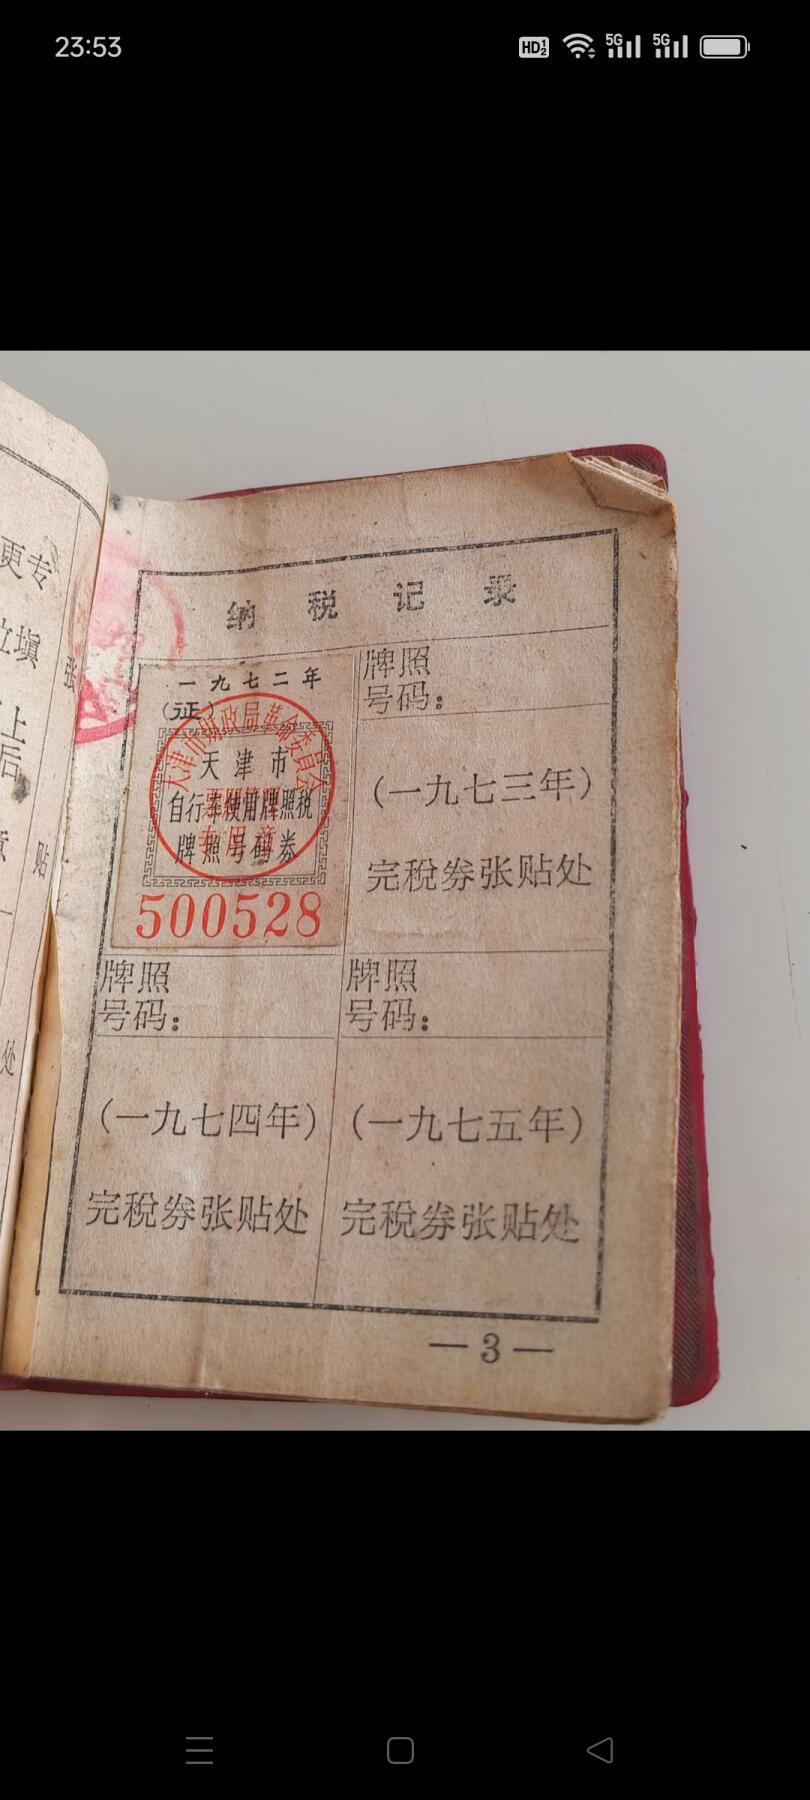 23:53
HD 1 2
5G
5G
更专
填
张
上
后
贴
处
纳税记录
一九七二年
(证)
天津市财政局革命委员会
天津市
自行车使用牌照税
牌照号码券
专用章
500528
牌照
号码：
(一九七三年)
完税券张贴处
牌照
号码：
(一九七四年)
完税券张贴处
牌照
号码：
(一九七五年)
完税券张贴处
—3—